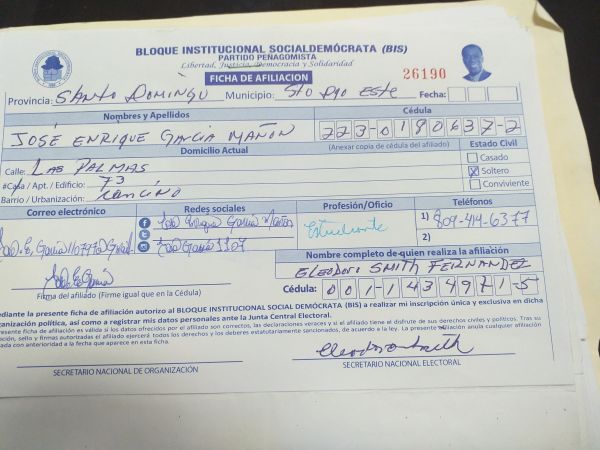 BLOQUE INSTITUCIONAL SOCIALDEMÓCRATA (BIS)
PARTIDO PEÑAGOMISTA
Libertad, Justicia, Democracia y Solidaridad
FICHA DE AFILIACION
26190
Provincia: Santo Domingo Municipio: Sto Dgo Este Fecha:
Nombres y Apellidos Cédula
José Enrique García Mañón 223-0190637-2
Domicilio Actual (Anexar copia de cédula del afiliado) Estado Civil
Calle: Las Palmas Casado
#Casa / Apt. / Edificio: 73 Soltero
Barrio / Urbanización: Cancino Conviviente
Correo electrónico Redes sociales Profesión/Oficio Teléfonos
José Enrique García Mañón Estudiante 1) 809-414-6377
José García 1107 2)
Nombre completo de quien realiza la afiliación
Eleodoro Smith Fernandez
Firma del afiliado (Firme igual que en la Cédula) Cédula: 001-1434971-5
ediante la presente ficha de afiliación autorizo al BLOQUE INSTITUCIONAL SOCIAL DEMÓCRATA (BIS) a realizar mi inscripción única y exclusiva en dicha
ganización política, así como a registrar mis datos personales ante la Junta Central Electoral.
presente ficha de afiliación es valida si los datos ofrecidos por el afiliado son correctos, las declaraciones veraces y si el afiliado tiene el disfrute de sus derechos civiles y políticos. Tras su
ación, sello y firmas autorizadas el afiliado ejercerá todos los derechos y los deberes estatutariamente sancionados, de acuerdo a la ley. La presente afiliación anula cualquier afiliación
ada con anterioridad a la fecha que aparece en esta ficha.
SECRETARIO NACIONAL DE ORGANIZACIÓN SECRETARIO NACIONAL ELECTORAL